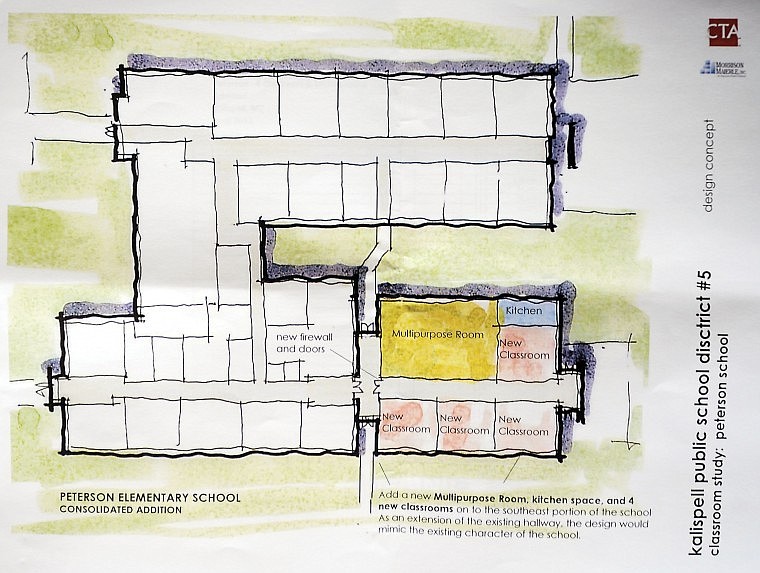 CTA
MORRISON
MAIERLE, INC.
design concept
kalispell public school disctrict #5
classroom study: peterson school
Kitchen
Multipurpose Room
New
Classroom
new firewall
and doors
New
Classroom
New
Classroom
New
Classroom
PETERSON ELEMENTARY SCHOOL
CONSOLIDATED ADDITION
Add a new Multipurpose Room, kitchen space, and 4
new classrooms on to the southeast portion of the school
As an extension of the existing hallway, the design would
mimic the existing character of the school.